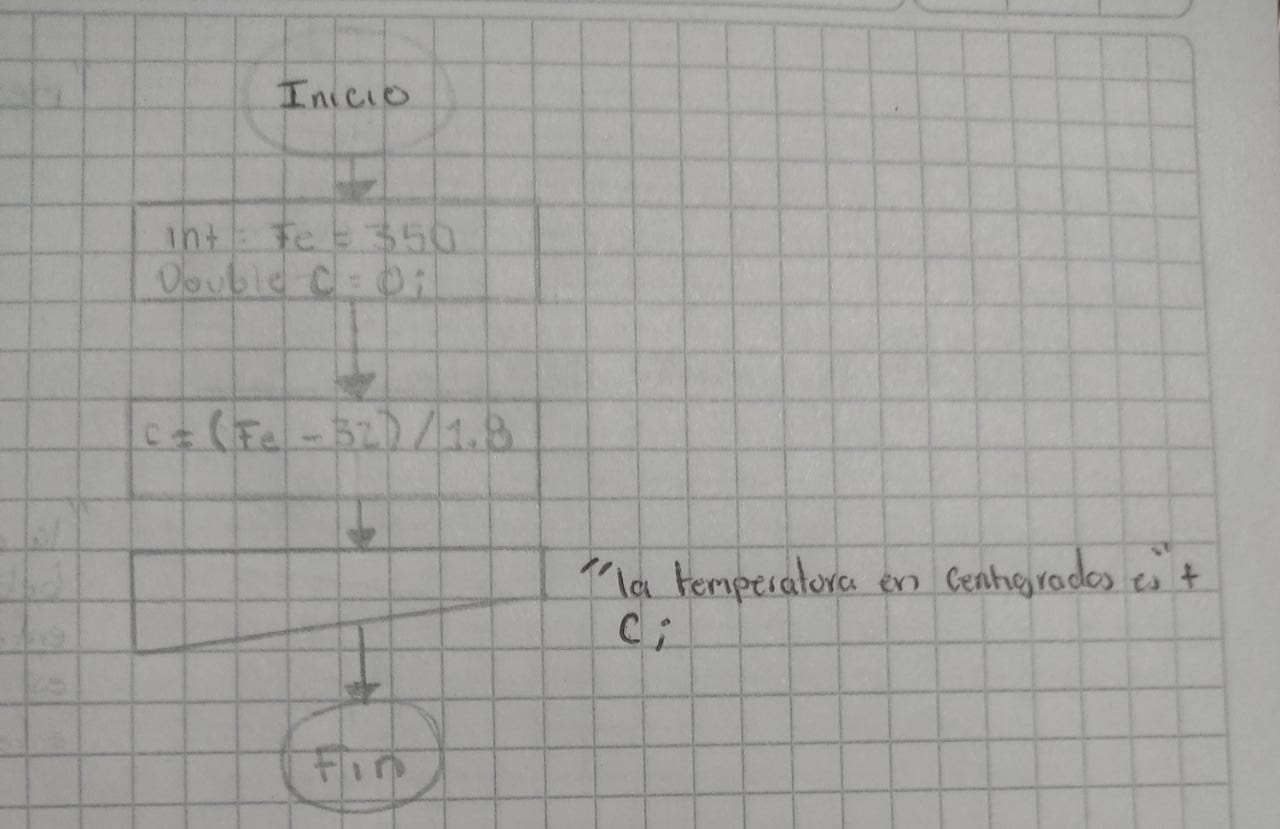 Inicio
int = Fe = 350
Double C = 0;
c = (Fe - 32) / 1.8
"la temperatura en centigrados es" +
C;
Fin